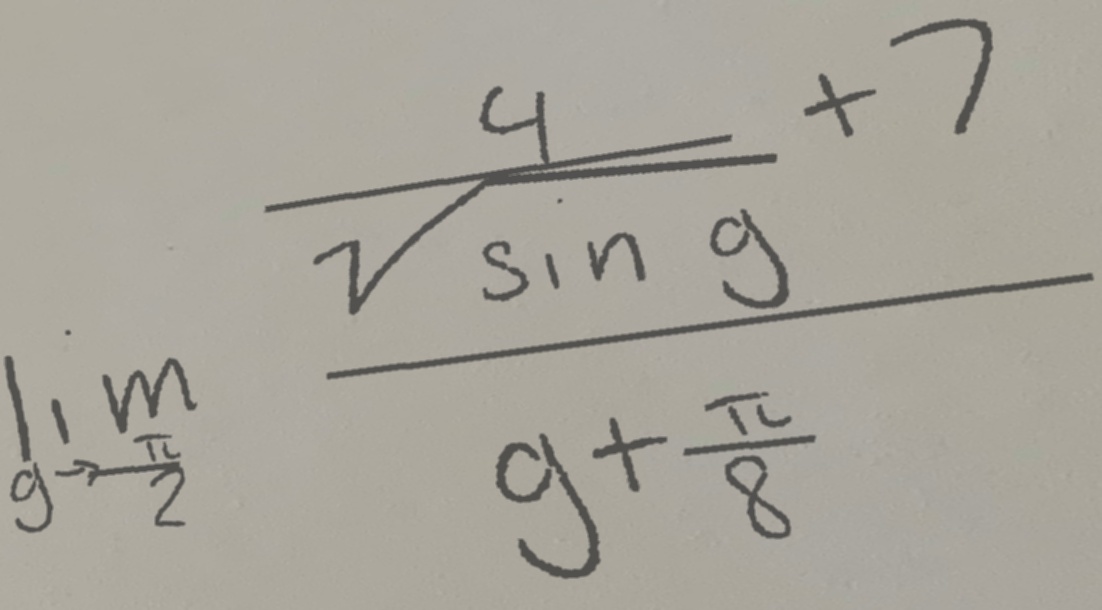 lim g→π/2 (4/√(sin g) + 7)/(g + π/8)